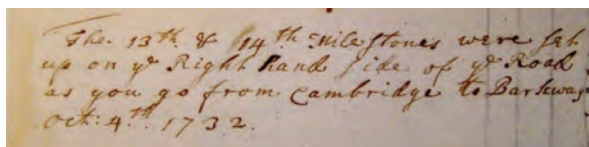 The 13th & 14th Mile Stones were Set
up on ye Right hand side of ye Road
as you go from Cambridge to Barkway
Oct: 4th. 1732.